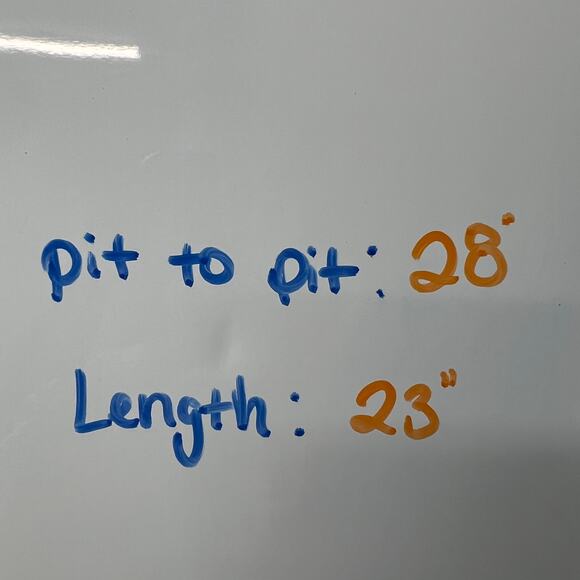 pit to pit: 28"
Length: 23"